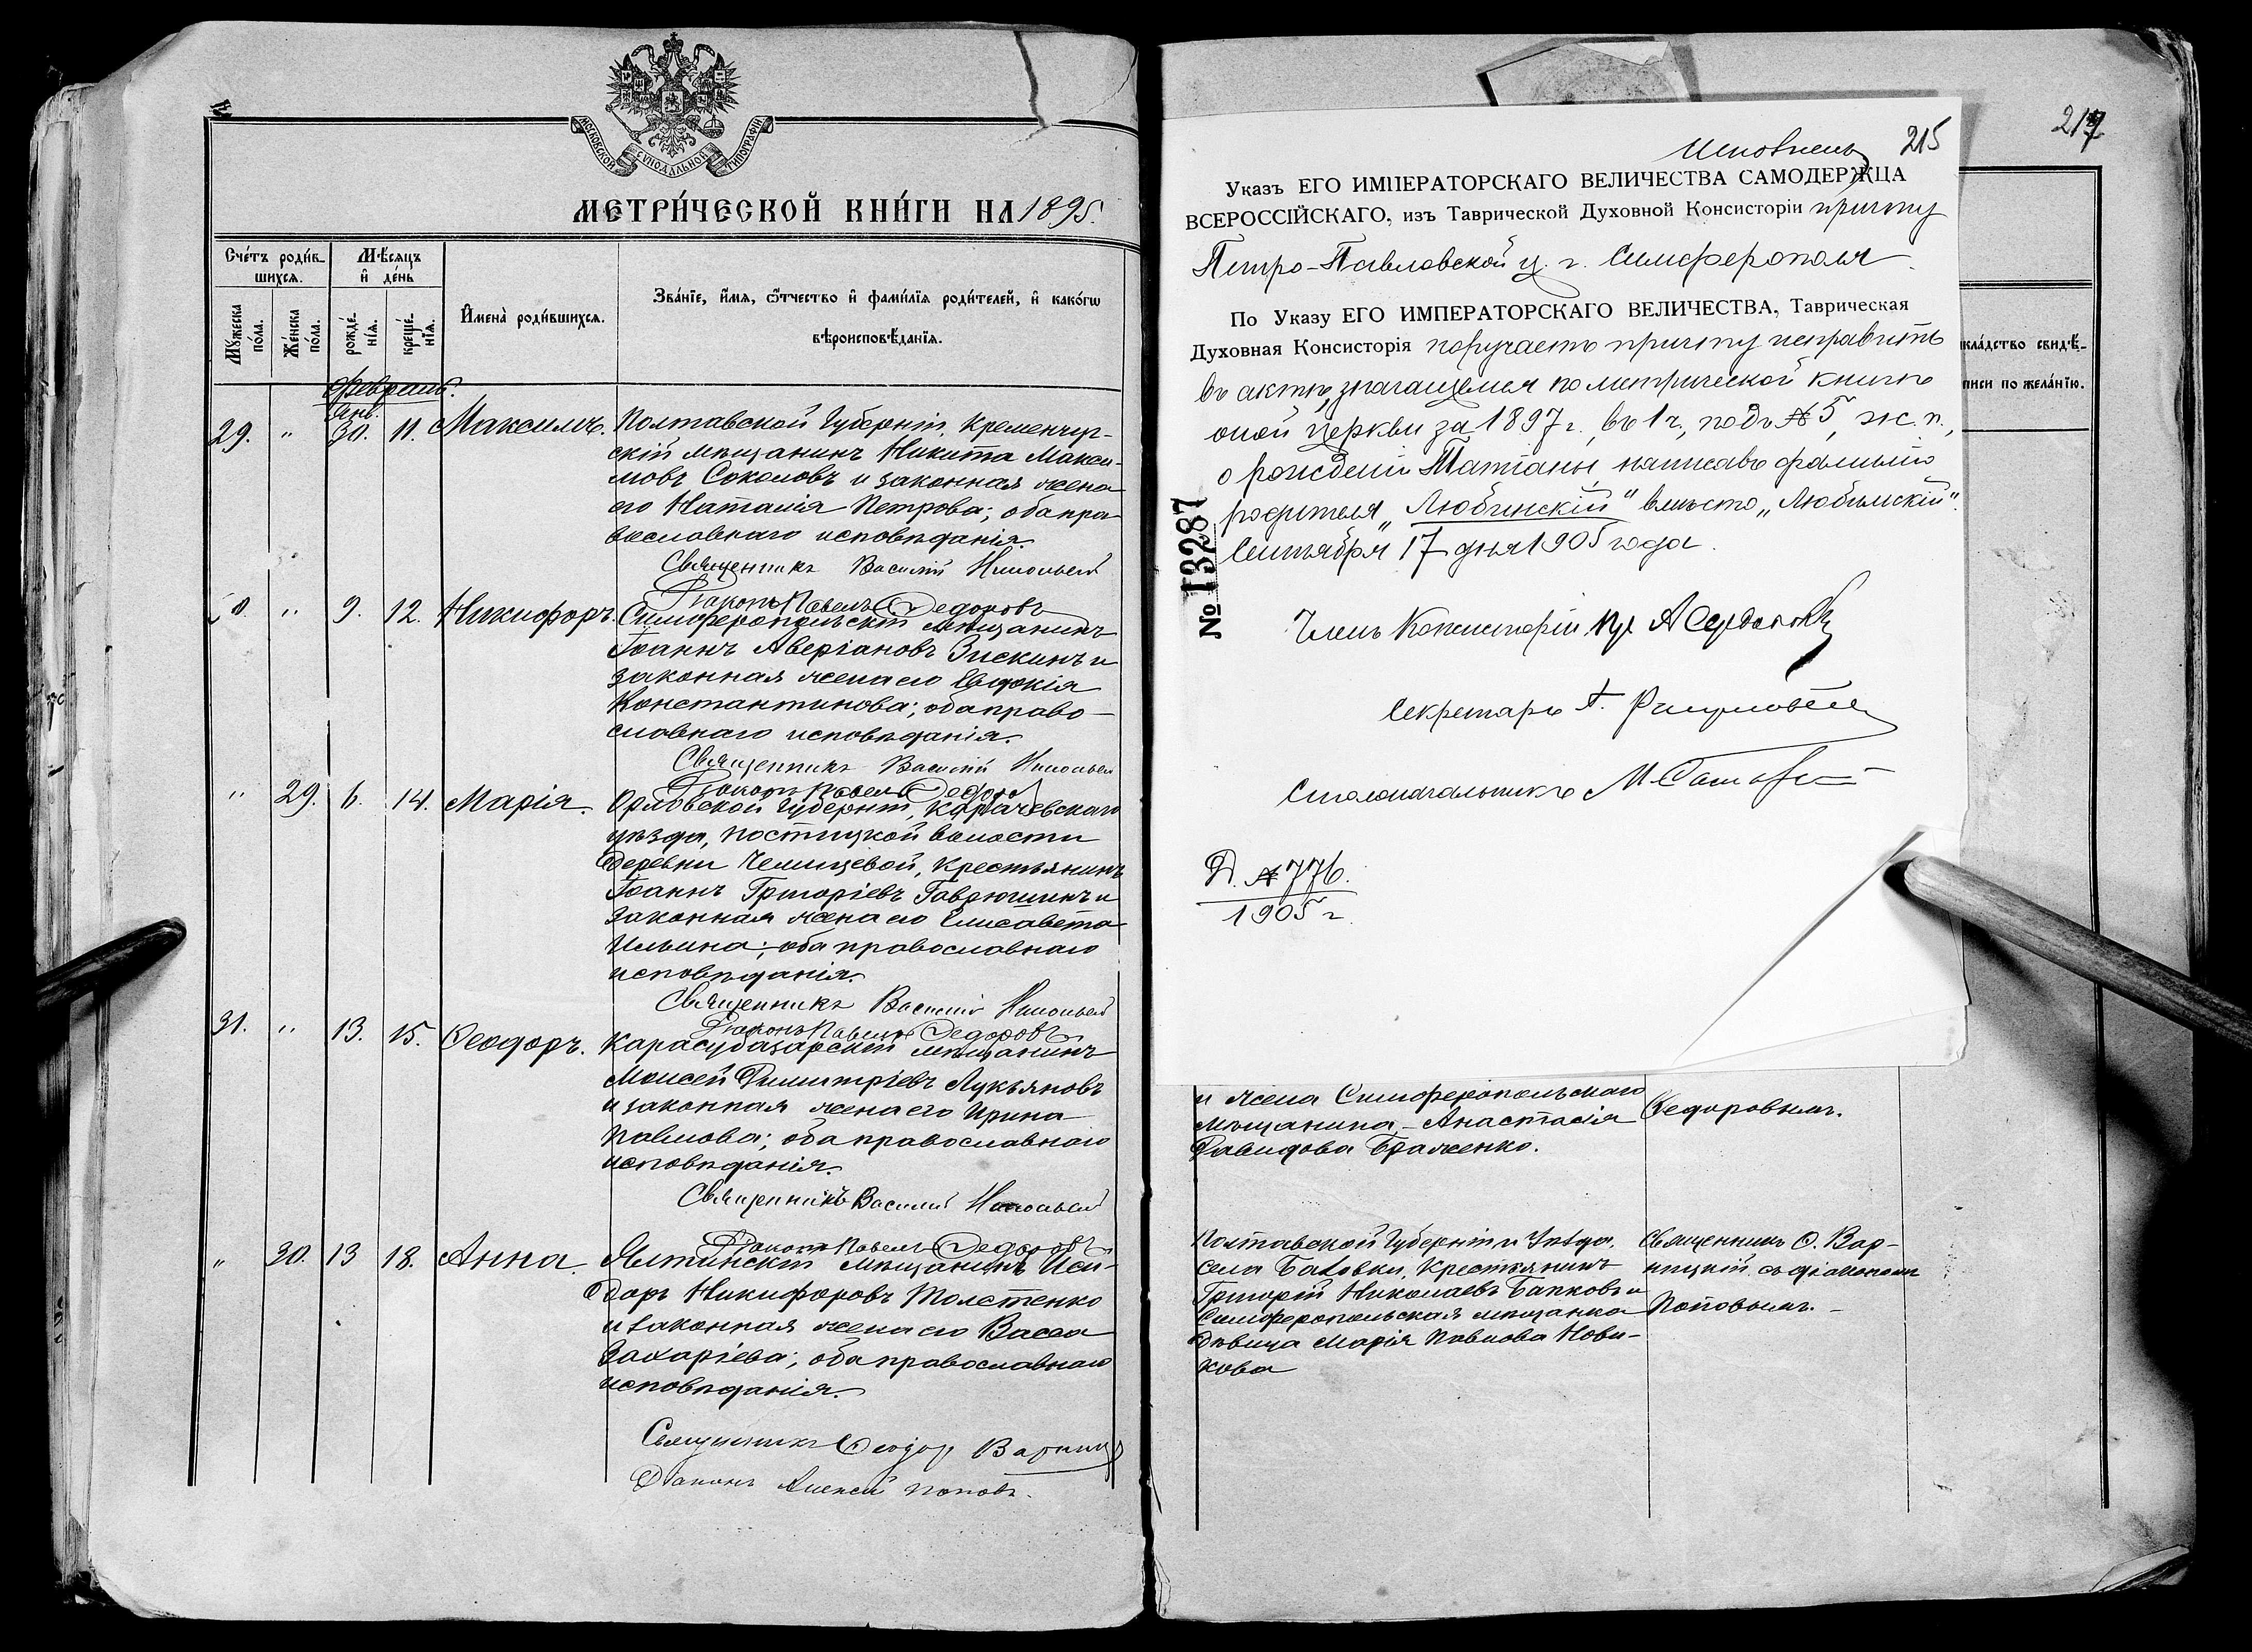 МОСКОВСКОЙ СУНОДАЛЬНОЙ ТИПОГРАФІИ
МЕТРИ́ЧЕСКОЙ КНИ́ГИ НА 1895.
Сче́тъ роди́в-
шихся.
Мѣ́сяцъ
и҆ де́нь
Му́жеска
по́ла.
Же́нска
по́ла.
рожде́-
нїя.
креще́-
нїя.
И҆мена̀ роди́вшихся.
Зва́нїе, и҆́мя, ѻ҆́тчество и҆ фами́лїя роди́телей, и҆ како́гѡ
вѣроисповѣ́данїя.
Февраль.
29. " Янв. 30. 11. Максимъ.
Полтавской Губерніи, Кременчуг-
скій мѣщанинъ Никита Макси-
мовъ Соколовъ и законная жена
его Наталія Петрова; оба пра-
вославнаго исповѣданія.
Священникъ Василій
Діаконъ Павелъ Ѳедоровъ
" 9. 12. Никифоръ.
Симферопольскій мѣщанинъ
Іоаннъ Аверіановъ Зискинъ и
законная жена его Евдокія
Константинова; оба право-
славнаго исповѣданія.
Священникъ Василій
Діаконъ Павелъ Ѳедоровъ
" 29. 6. 14. Марія.
Орловской Губерніи, Карачевскаго
уѣзда, волости
деревни Челищевой, крестьянинъ
Іоаннъ Григоріевъ Гаврюшинъ и
законная жена его Елисавета
Ильина; оба православнаго
исповѣданія.
Священникъ Василій
Діаконъ Павелъ Ѳедоровъ
31. " 13. 15. Ѳеодоръ.
Карасубазарскій мѣщанинъ
Моисей Димитріевъ Лукьяновъ
и законная жена его Ирина
Павлова; оба православнаго
исповѣданія.
Священникъ Василій
Діаконъ Павелъ Ѳедоровъ
" 30. 13 18. Анна.
Ялтинскій мѣщанинъ Иси-
доръ Никифоровъ Толстенко
и законная жена его Васса
Захаріева; оба православнаго
исповѣданія.
Священникъ Ѳеодор
Діаконъ Алексій Поповъ.
217
215
Исполнено
Указъ ЕГО ИМПЕРАТОРСКАГО ВЕЛИЧЕСТВА САМОДЕРЖЦА
ВСЕРОССІЙСКАГО, изъ Таврической Духовной Консисторіи причту
Петро-Павловской ц. г. Симферополя.
По Указу ЕГО ИМПЕРАТОРСКАГО ВЕЛИЧЕСТВА, Таврическая
Духовная Консисторія поручаетъ причту исправить
въ актѣ, значащемся по метрической книгѣ
оной церкви за 1897 г., въ 1 ч., подъ № 5, ж. п.,
о рожденіи Татіаны, написавъ фамилію
родителя „Любинскій" вмѣсто „Любимскій".
Сентября 17 дня 1905 года.
№ 13287
Членъ Консисторіи
Секретарь
Столоначальникъ
Д. № 776.
1905 г.
кла́дство свидѣ́-
писи по жела́нїю.
и жена Симферопольскаго
мѣщанина, - Анастасія
Давидова Браженко.
Ѳедоровымъ.
Полтавской Губерніи и Уѣзда,
села крестьянинъ
Григорій Николаевъ Бапковъ и
Симферопольская мѣщанка
дѣвица Марія Павлова Нови-
кова
Священникъ Ѳ. Вар-
ницкій съ діакономъ
Поповымъ. -